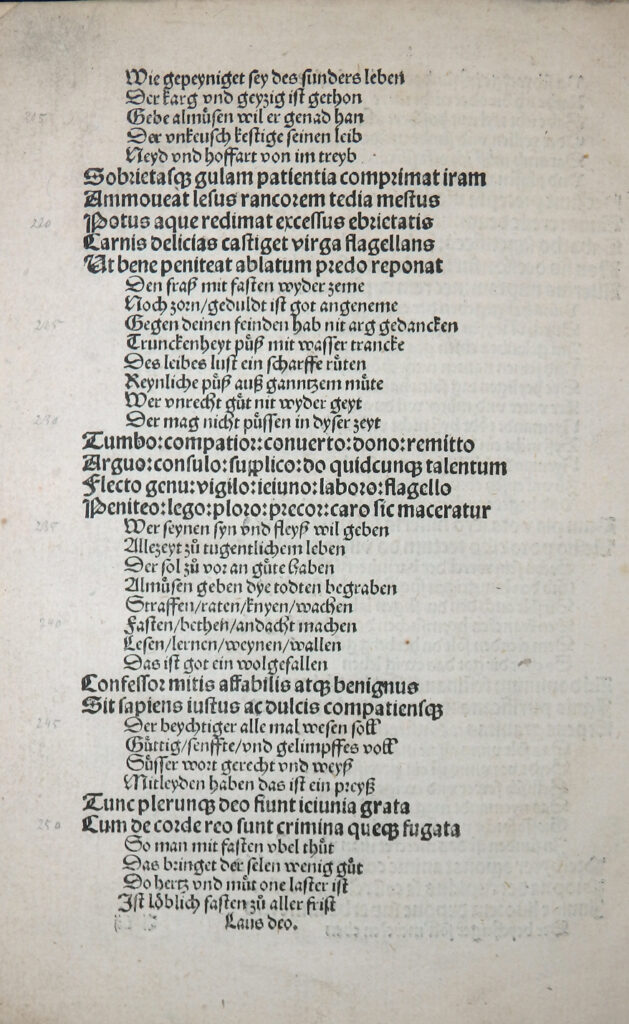 Wie gepeyniget sey des sünders leben
Der karg vnd geyzig ist gethon
215
Gebe almůsen wil er genad han
Der vnkeusch kestige seinen leib
Neyd vnd hoffart von im treyb
Sobrietasqꝫ gulam patientia comprimat iram
Ammoueat lesus rancorem tedia mestus
220
Potus aque redimat excessus ebrietatis
Carnis delicias castiget virga flagellans
Ut bene peniteat ablatum predo reponat
Den fraß mit fasten wyder zeme
Noch zorn/geduldt ist got angeneme
225
Gegen deinen feinden hab nit arg gedancken
Trunckenheyt půß mit wasser trancke
Des leibes lust ein scharffe růten
Reynliche půß auß ganntzem můte
Wer vnrecht gůt nit wyder geyt
230
Der mag nicht půssen in dyser zeyt
Tumbo:compatior:conuerto:dono:remitto
Arguo:consulo:supplico:do quidcunqꝫ talentum
Flecto genu:vigilo:ieiuno:laboro:flagello
Peniteo:lego:ploro:precor:caro sic maceratur
235
Wer seynen syn vnd fleyß wil geben
Allezeyt zů tugentlichem leben
Der sol zů vor an gůte haben
Almůsen geben dye todten begraben
Straffen/raten/knyen/wachen
240
Fasten/bethen/andacht machen
Lesen/lernen/weynen/wallen
Das ist got ein wolgefallen
Confessor mitis affabilis atqꝫ benignus
Sit sapiens iustus ac dulcis compatiensqꝫ
245
Der beychtiger alle mal wesen soll
Gůttig/senffte/vnd gelimpffes voll
Sůsser wort gerecht vnd weyß
Mitleyden haben das ist ein preyß
Tunc plerunqꝫ deo fiunt ieiunia grata
250
Cum de corde reo sunt crimina queqꝫ fugata
So man mit fasten vbel thůt
Das bringet der selen wenig gůt
Do hertz vnd můt one laster ist
Ist löblich fasten zů aller frist
Laus deo.